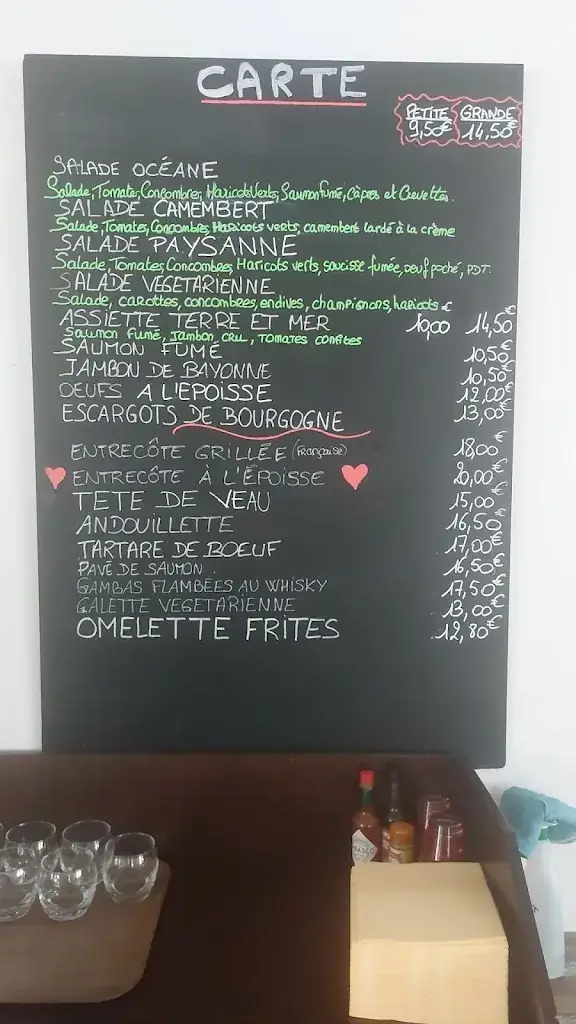 CARTE
PETITE GRANDE
9,50€ 14,50€
SALADE OCÉANE
Salade, Tomates, Concombres, Haricots Verts, Saumon fumé, Câpres et Crevettes.
SALADE CAMEMBERT
Salade, Tomates, Concombres, Haricots verts, camembert lardé à la crème
SALADE PAYSANNE
Salade, Tomates, Concombres, Haricots verts, saucisse fumée, oeuf poché, PDT.
SALADE VEGETARIENNE
Salade, carottes, concombres, endives, champignons, haricots
ASSIETTE TERRE ET MER 10,00 € 14,50€
Saumon fumé, Jambon cru, Tomates confites
SAUMON FUMÉ 10,50€
JAMBON DE BAYONNE 10,50€
OEUFS A L'EPOISSE 12,00€
ESCARGOTS DE BOURGOGNE 13,00€
ENTRECÔTE GRILLÉE (Française) 18,00€
ENTRECÔTE À L'ÉPOISSE 20,00€
TETE DE VEAU 15,00€
ANDOUILLETTE 16,50€
TARTARE DE BOEUF 17,00€
PAVÉ DE SAUMON. 16,50€
GAMBAS FLAMBÉES AU WHISKY 17,50€
GALETTE VEGETARIENNE 13,00€
OMELETTE FRITES 12,80€